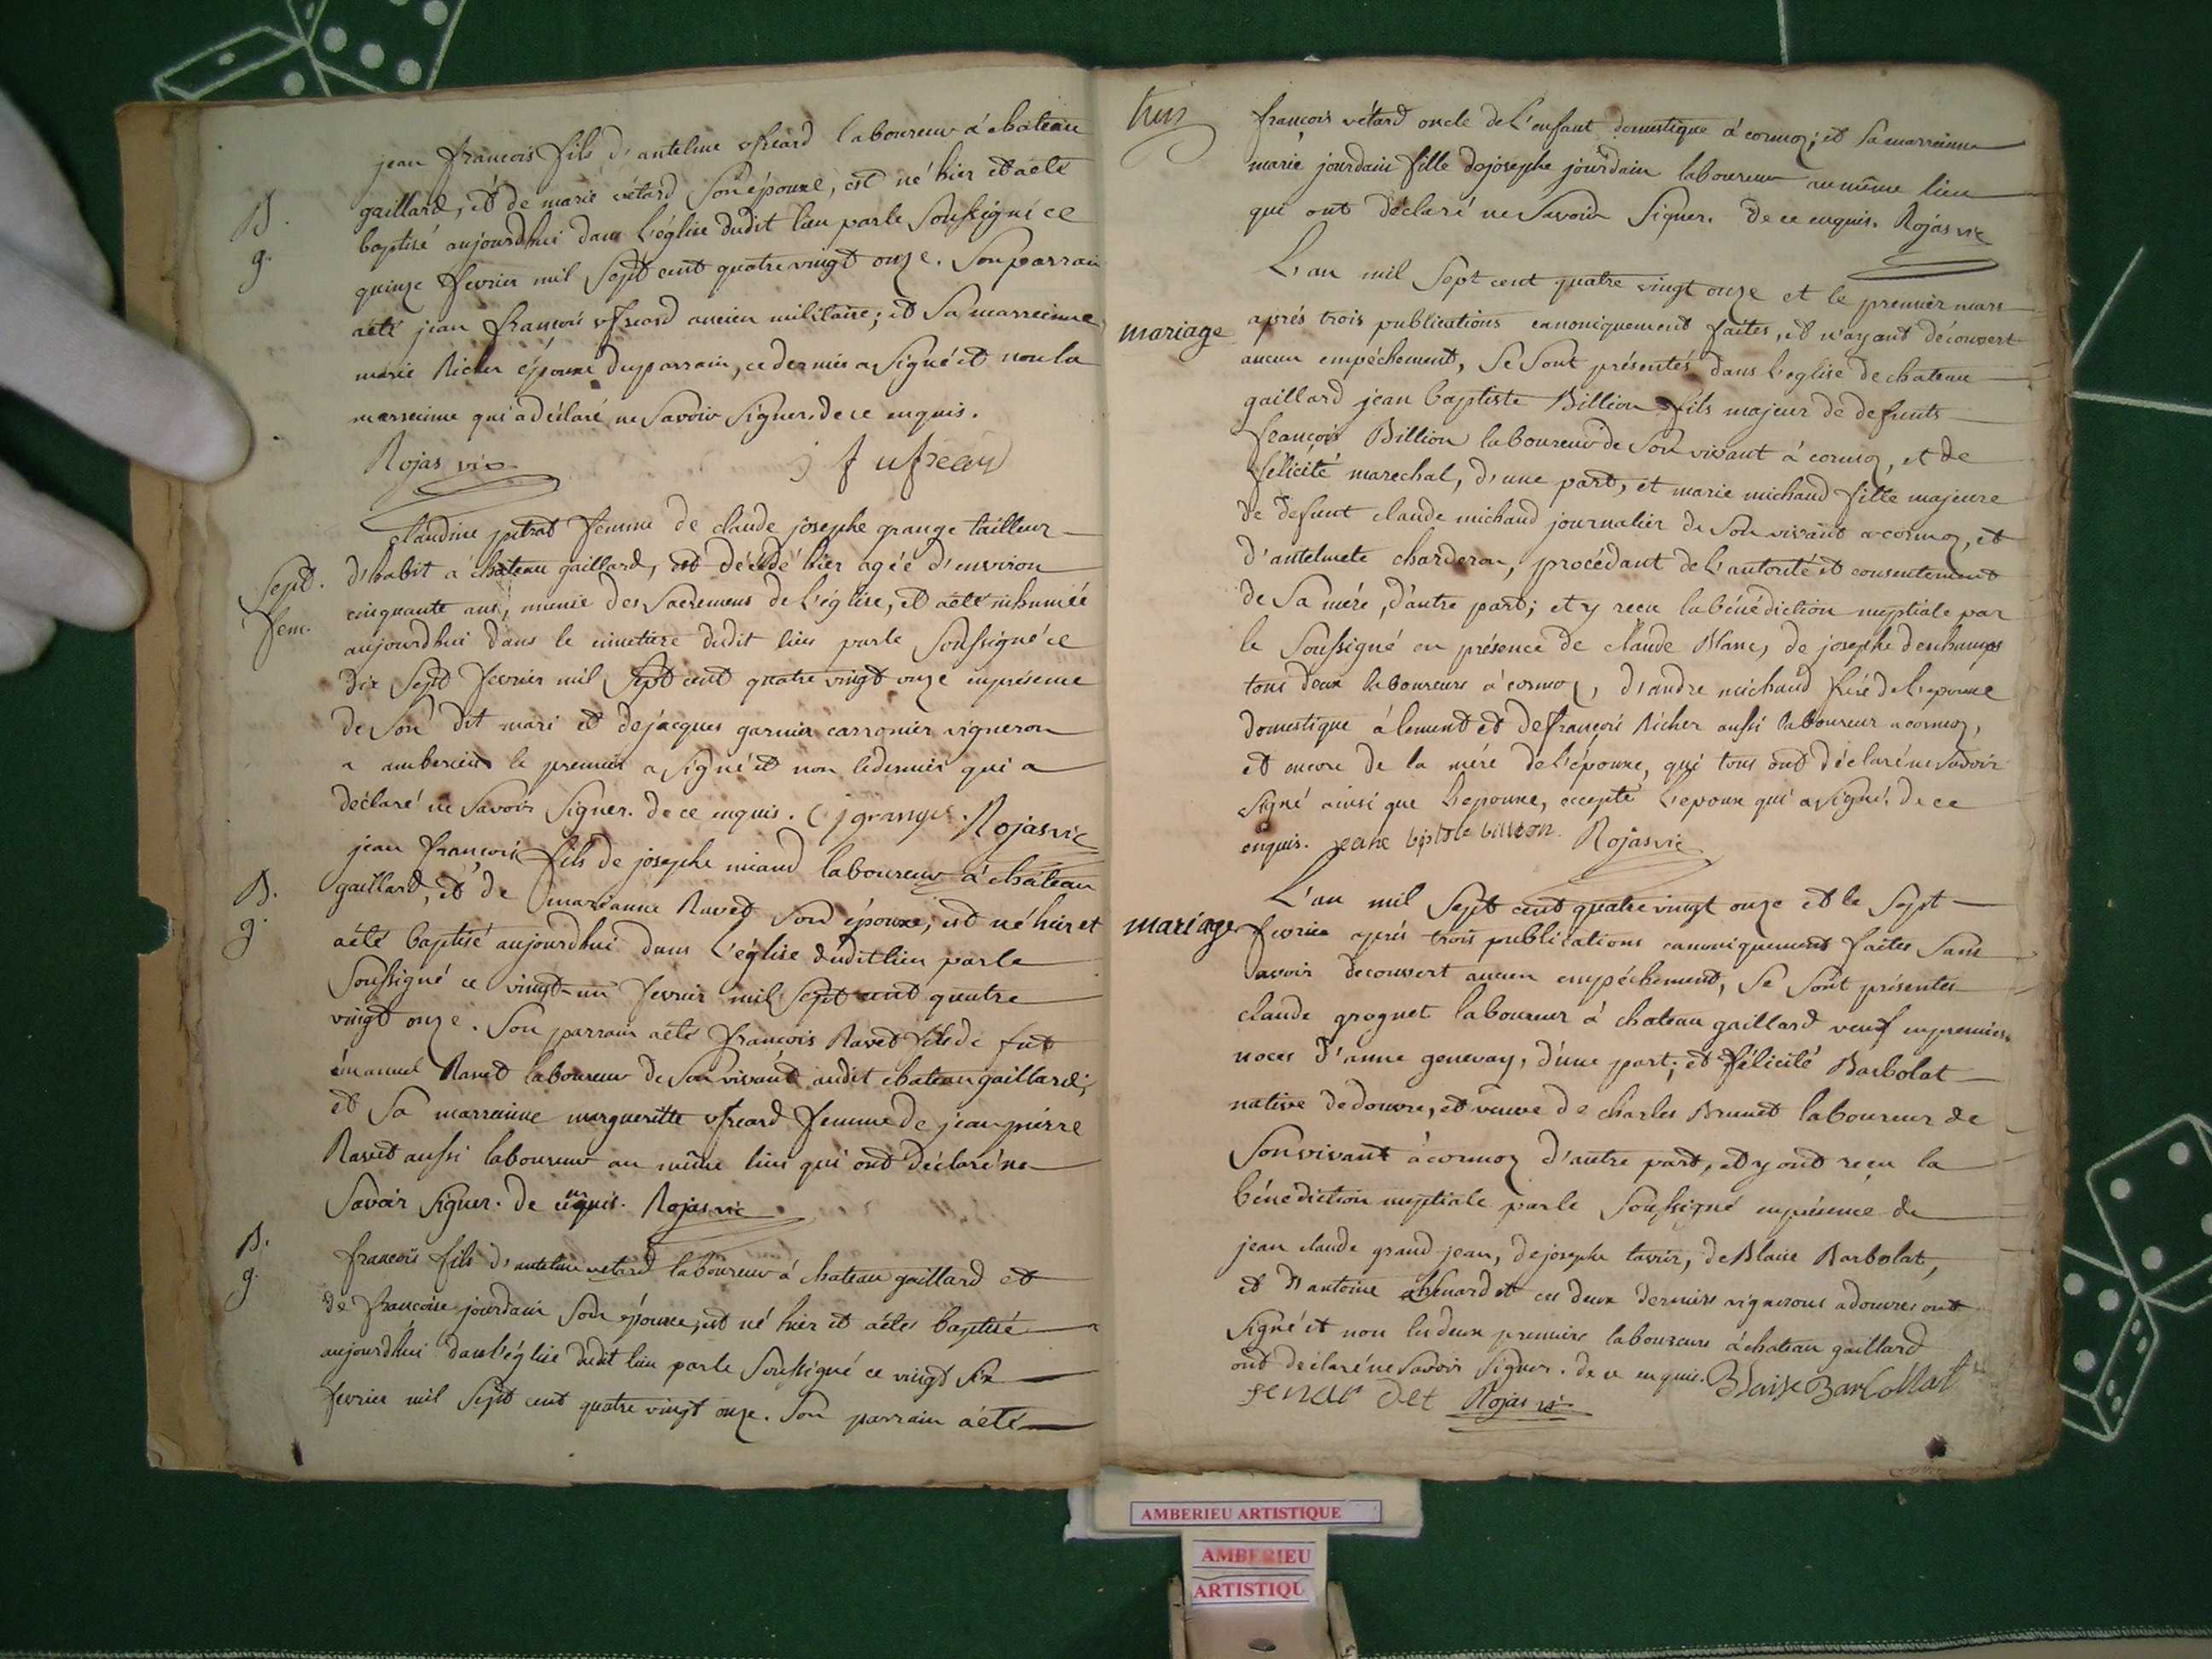 jean françois fils d'antelme ufréard laboureur à château
B. gaillard, et de marie vétard son épouse, est né hier et a été
g. baptisé aujourdhui dans l'église dudit lieu par le soussigné ce
quinze fevrier mil sept cent quatre vingt onze. Son parrain
a été jean françois ufréard ancien militaire; et sa marreinne
marie Richer épouse du parrain, ce dernier a signé et non la
marreinne qui a déclaré ne savoir signer. de ce enquis.
Rojas vic j f ufreard
Claudine pitrat femme de claude josephe grange tailleur
Sept. d'habit à château gaillard, est décédé hier agée d'environ
fem. cinquante ans, munie des sacremens de l'église, et a été inhumée
aujourdhui dans le cimetiere dudit lieu par le soussigné ce
dix sept fevrier mil sept cent quatre vingt onze en présence
de son dit mari et de jacques garnier carronier vigneron
a amberieux le premier a signé et non le dernier qui a
déclaré ne savoir signer. de ce enquis. C j grange. Rojas vic
jean françois fils de josephe miaud laboureur à château
B. gaillard, et de marianne Ravet son épouse, est né hier et
g. a été baptisé aujourdhui dans l'église dudit lieu par le
soussigné ce vingt-un fevrier mil sept cent quatre
vingt onze. Son parrain a été françois Ravet fils de fut
émanuel Ravet laboureur de son vivant audit chateau gaillard;
et sa marreinne margueritte ufreard femme de jean pierre
Ravet aussi laboureur au même lieu qui ont déclaré ne
savoir signer. de ce enquis. Rojas vic
B. françois fils d'antelme vetard laboureur à chateau gaillard et
g. de françoise jourdain son épouse, est né hier et a été baptisé
aujourdhui dans l'église dudit lieu par le soussigné ce vingt six
fevrier mil sept cent quatre vingt onze. Son parrain a été
trois
françois vétard oncle de l'enfant domestique à cormoz; et sa marreinne
marie jourdain fille de josephe jourdain laboureur au même lieu
qui ont déclaré ne savoir signer. de ce enquis. Rojas vic
L'an mil sept cent quatre vingt onze et le premier mars
mariage après trois publications canoniquement faites, et n'ayant découvert
aucun empéchement, se sont présentés dans l'eglise de chateau
gaillard jean baptiste Billion fils majeur de defunts
françois Billion laboureur de son vivant à cormoz, et de
félicité marechal, d'une part, et marie michaud fille majeure
de defunt claude michaud journalier de son vivant a cormoz, et
d'antelmete charderon, procédant de l'autorité et consentement
de sa mére, d'autre part; et y recu la bénédiction nuptiale par
le soussigné en présence de claude Blanc, de josephe deschamps
tous deux laboureurs à cormoz, d'andre michaud frére de l'epouse
domestique à lement et de françois Richer aussi laboureur a cormoz,
et encore de la mére de l'épouse, qui tous ont déclaré ne savoir
signé ainsi que l'epouse, eccepté l'epoux qui a signé. de ce
enquis. jeane bptste billion. Rojas vic
L'an mil sept cent quatre vingt onze et le sept
mariage fevrier aprés trois publications canoniquement faites sans
avoir decouvert aucun empéchement, se sont présentés
claude grognet laboureur à chateau gaillard veuf en premieres
noces d'anne genevay, d'une part; et félicité Barbolat
native de douvre, et veuve de charles Brunet laboureur de
son vivant à cormoz d'autre part, et y ont reçu la
bénédiction nuptiale par le soussigné en présence de
jean claude grand jean, de josephe tavier, de Blaise Barbolat,
et d'antoine chenardet ces deux derniers vignerons a douvres ont
signé et non les deux premiers laboureurs à chateau gaillard
ont déclaré ne savoir signer. de ce enquis. Blaise Barbollat
senar det Rojas vic
AMBERIEU ARTISTIQUE
AMBERIEU
ARTISTIQU